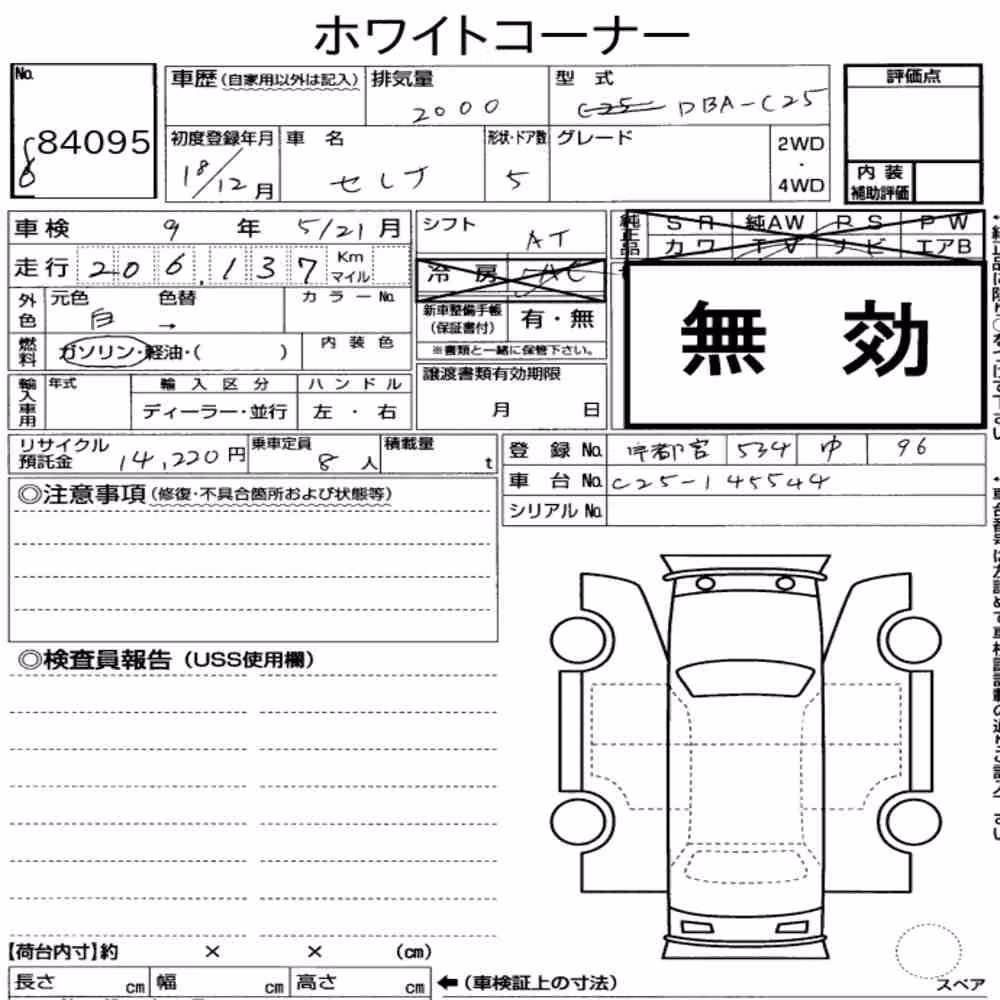 ホワイトコーナー
No.
84095
車歴(自家用以外は記入)
排気量
2000
型式
C25 DBA-C25
評価点
初度登録年月
18/12月
車名
セレナ
形状・ドア数
5
グレード
2WD
・
4WD
内装
補助評価
車検 9年5/21月
シフト
AT
純正品
SR 純AW RS PW
カワ TV ナビ エアB
走行 206,137 Km
マイル
冷房 AC
外色
元色 白
色替 →
カラーNo.
新車整備手帳
(保証書付)
有・無
※書類と一緒に保管下さい。
無効
燃料
ガソリン・軽油・( )
内装色
輸入車用
年式
輸入区分
ディーラー・並行
ハンドル
左・右
譲渡書類有効期限
月 日
リサイクル
預託金 14,220円
乗車定員
8人
積載量
t
登録No. 宇都宮 534 ゆ 96
車台No. C25-145544
シリアルNo.
◎注意事項(修復・不具合箇所および状態等)
◎検査員報告(USS使用欄)
【荷台内寸】約 × × (cm)
長さ cm 幅 cm 高さ cm
←(車検証上の寸法)
スペア